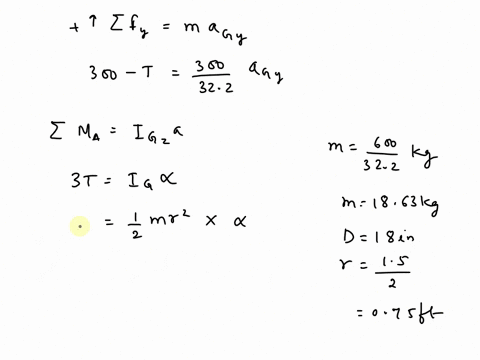 + ↑ Σ fy = m aGy
300 - T = 300/32.2 aGy
Σ MA = IG2 a
3T = IG α
= 1/2 mr² × α
m = 600/32.2 kg
m = 18.63 kg
D = 18 in
r = 1.5/2
= 0.75 ft